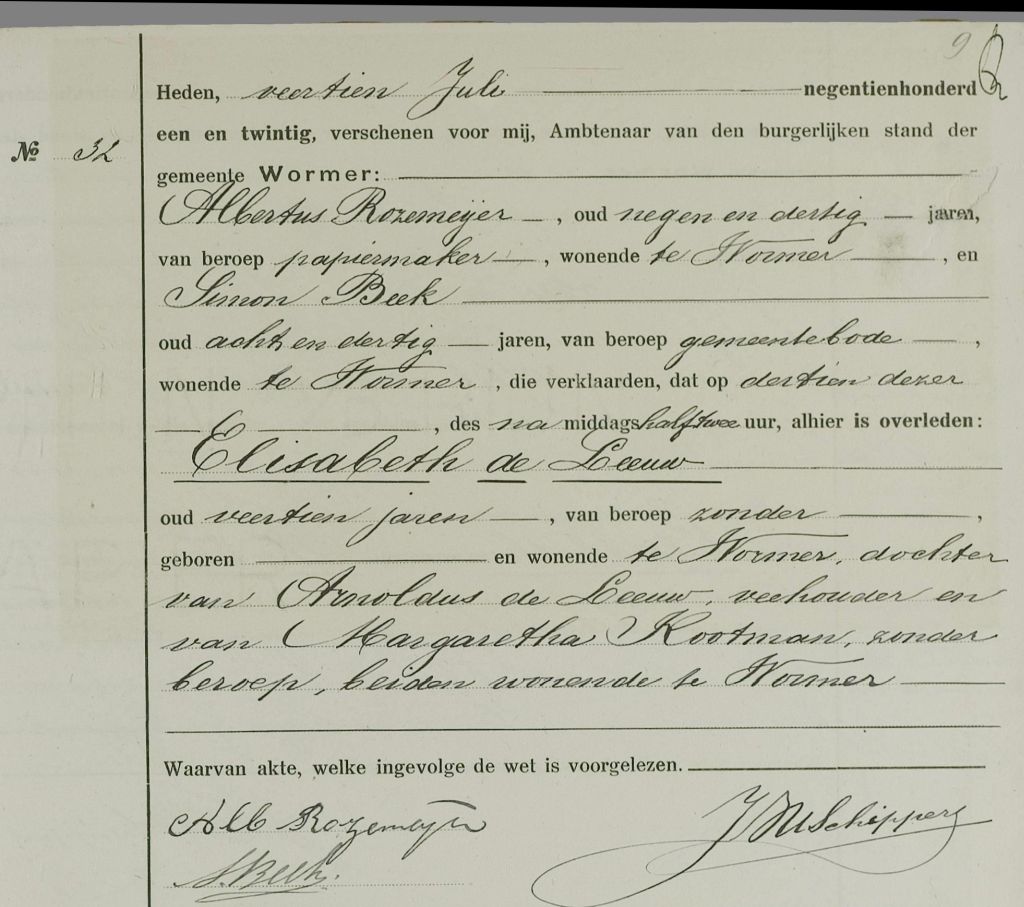 9
Heden, veertien Juli negentienhonderd
een en twintig, verschenen voor mij, Ambtenaar van den burgerlijken stand der
№ 32
gemeente Wormer:
Albertus Rozemeijer, oud negen en dertig jaren,
van beroep papiermaker, wonende te Wormer, en
Simon Beek
oud acht en dertig jaren, van beroep gemeentebode,
wonende te Wormer, die verklaarden, dat op dertien dezer
, des na middags half twee uur, alhier is overleden:
Elisabeth de Leeuw
oud veertien jaren, van beroep zonder,
geboren en wonende te Wormer, dochter
van Arnoldus de Leeuw, veehouder en
van Margaretha Kootman, zonder
beroep, beiden wonende te Wormer
Waarvan akte, welke ingevolge de wet is voorgelezen.
Alb Rozemeijer
Schippers
S. Beek.